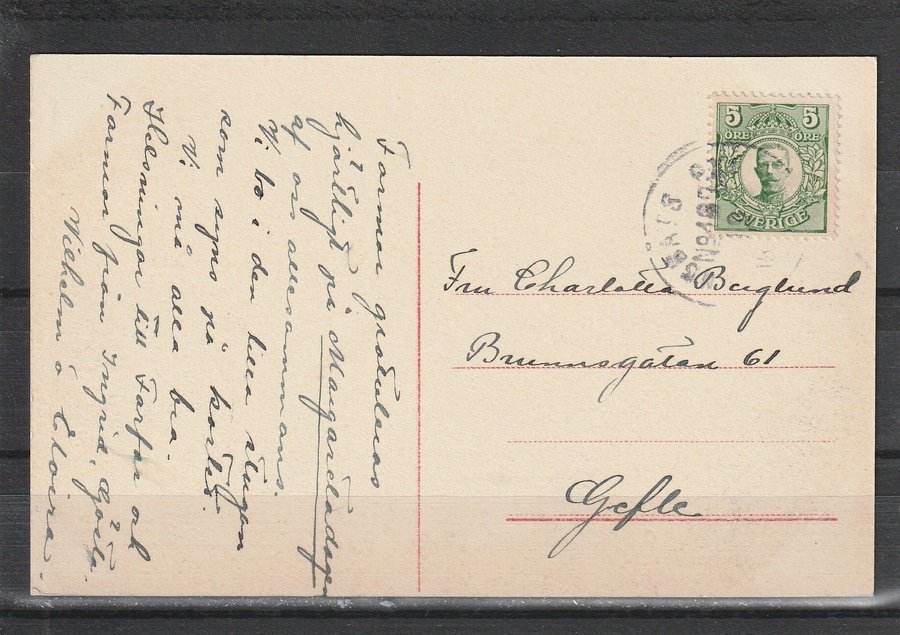 Farmor gratuleras
hjärtligt på Margaretadagen
af oss allesammans.
Vi bo i den lilla stugan
som synes på kortet.
Vi må alla bra.
Helsningar till Farfar och
Farmor från Ingrid, Gösta
Wilhelm o Elvira.
5 5
ÖRE ÖRE
SVERIGE
Fru Charlotta Berglund
Brunnsgatan 61
Gefle